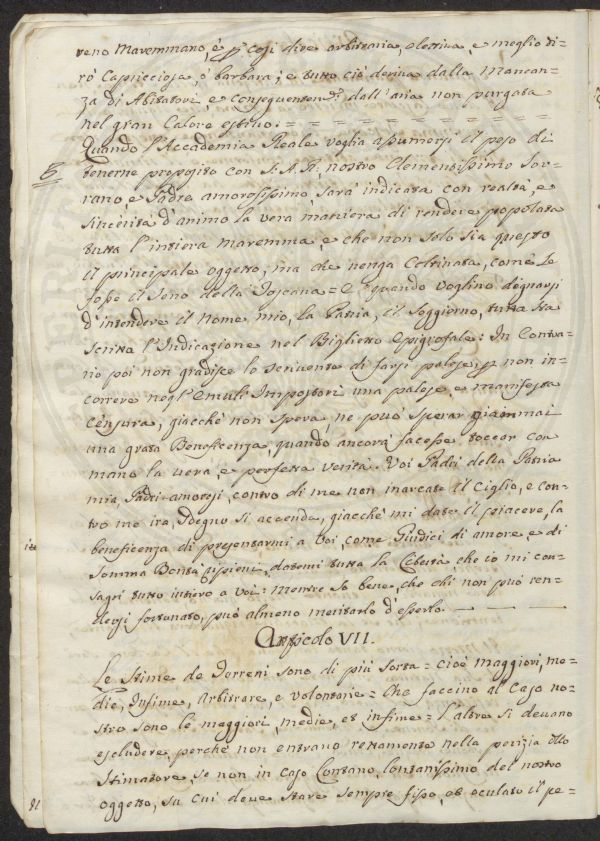 reno Maremmano, è p così dire arbitraria, elettiva, e meglio di=
rò Capricciosa, o barbara; e tutto ciò deriva dalla Mancan=
za di Abitatori, e conseguentem.e dall'aria non purgata
nel gran Calore estivo. = = = = = = = = = =
Quando l'Accademia Reale voglia assumersi il peso di
tenerne proposito con S: A: R: nostro Clementissimo Sov=
rano, e Padre amorosissimo, sarà indicata con realtà, e
sincerità d'animo la vera maniera di rendere popolata
tutta l'intiera Maremma, e che non solo sia questo
il principale oggetto, ma che venga Coltivata, come se
fosse il Seno della Toscana = E quando voglino degnarsi
d'intendere il Nome mio, la Patria, il Soggiorno, tutta sta
scritta l'Indicazione nel Biglietto Epigrafale: In Contra=
rio poi non gradisce lo scrivente di farsi palese, p non in=
correre negl'Emuli Impostori una palese, e manifesta
Censura, giacchè non spera, ne può sperar giammai
una grata Beneficenza, quando ancora facesse toccar con
mano la vera, e perfetta verità. Voi Padri della Patria
mia, Padri amorosi, contro di me non marcate il Ciglio, e con=
tro me ira, sdegno si accenda, giacchè mi date il piacere, la
beneficenza di presentarmi a Voi, come Giudici di amore, e di
somma Bontà ripieni, datemi tutta la Libertà che io mi con=
sagri tutto intiero a Voi: Mentre so bene, che chi non può ren=
dersi fortunato, può almeno meritarlo d'esserlo. — — —
Articolo VII.
Le Stime de Terreni sono di più sorta = cioè Maggiori, me=
die, Infime, Arbitrarie, e volontarie = Che faccino al Caso no=
stro sono le maggiori, medie, et infime = L'altre si devano
escludere perchè non entrano rettamente nella perizia dello
Stimatore, se non in caso Lontano, lontanissimo del nostro
oggetto, su cui deve stare sempre fisso, ed oculato il pe=